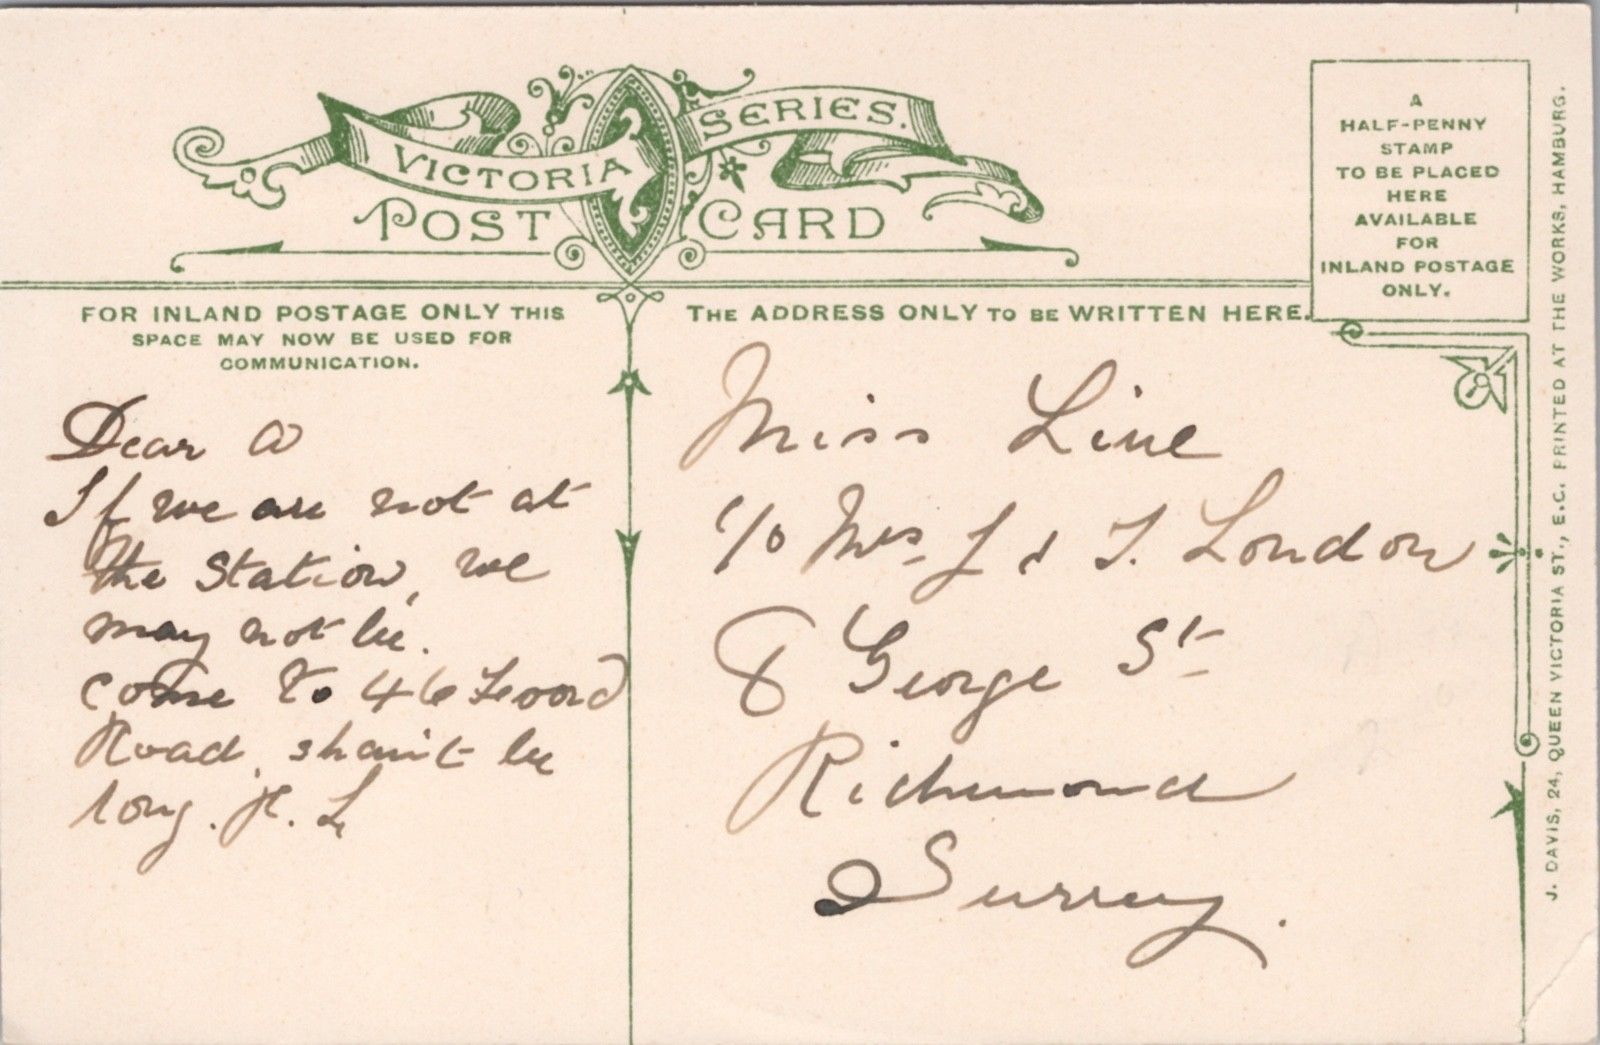 VICTORIA SERIES.
POST CARD
A
HALF-PENNY
STAMP
TO BE PLACED
HERE
AVAILABLE
FOR
INLAND POSTAGE
ONLY.
FOR INLAND POSTAGE ONLY THIS
SPACE MAY NOW BE USED FOR
COMMUNICATION.
Dear A
If we are not at
the Station, we
may not be.
come to 46
Road, shan't be
long. H. L
THE ADDRESS ONLY TO BE WRITTEN HERE.
Miss Line
c/o Mrs J & T. London
8 George St
Richmond
Surrey.
J. DAVIS, 24, QUEEN VICTORIA ST., E.C. PRINTED AT THE WORKS, HAMBURG.